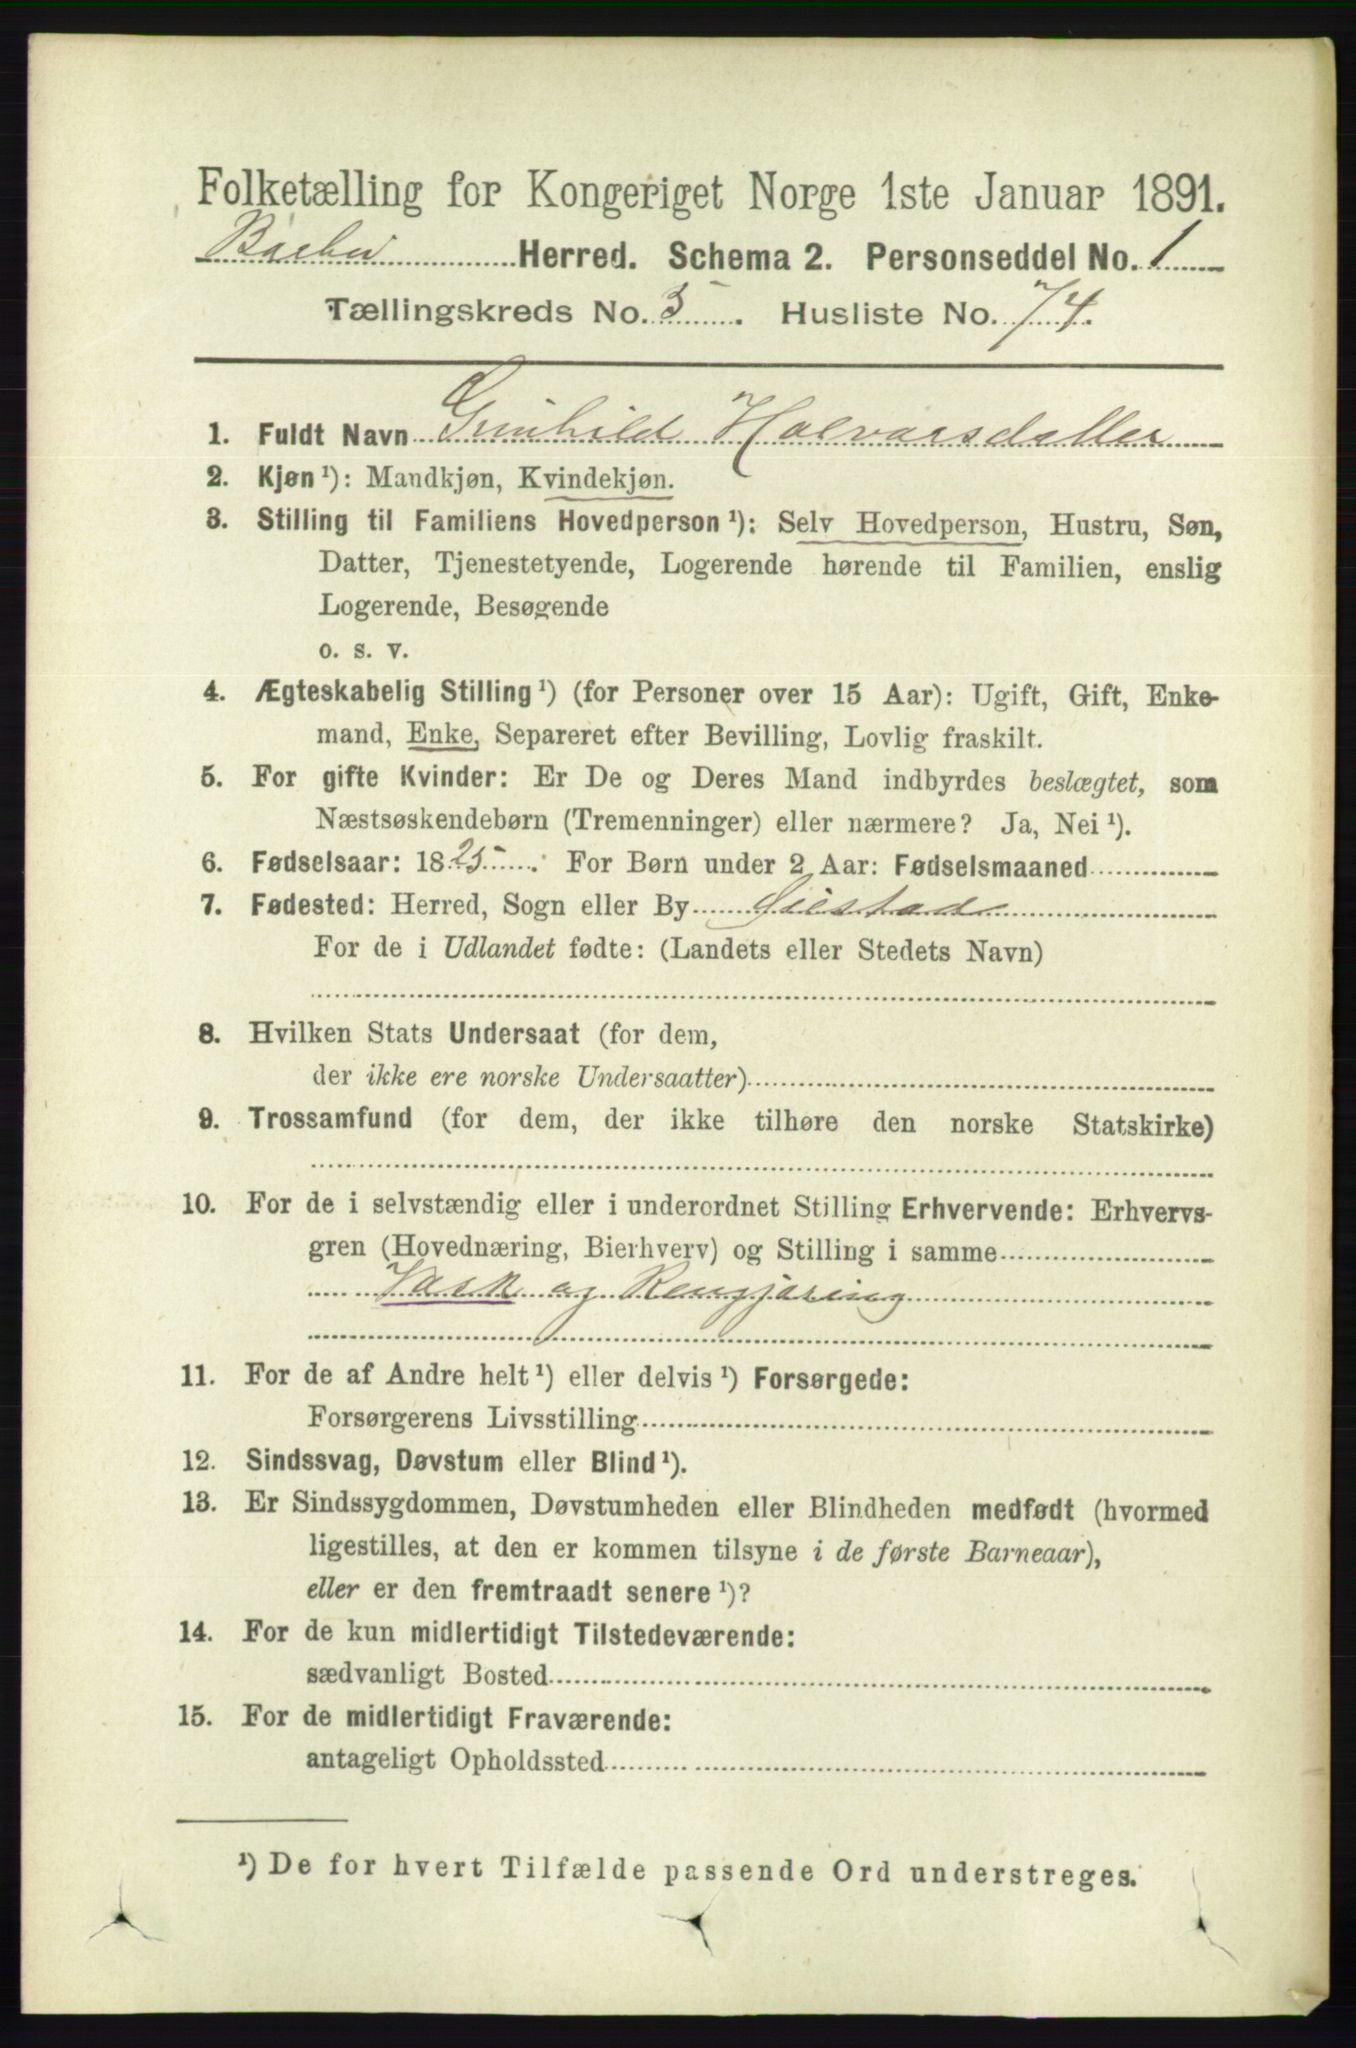 Folketælling for Kongeriget Norge 1ste Januar 1891.
Barbu Herred. Schema 2. Personseddel No. 1
Tællingskreds No. 5. Husliste No. 74.
1. Fuldt Navn Gunhild Halvorsdatter
2. Kjøn ¹): Mandkjøn, Kvindekjøn.
3. Stilling til Familiens Hovedperson ¹): Selv Hovedperson, Hustru, Søn,
Datter, Tjenestetyende, Logerende hørende til Familien, enslig
Logerende, Besøgende
o. s. v.
4. Ægteskabelig Stilling ¹) (for Personer over 15 Aar): Ugift, Gift, Enke-
mand, Enke, Separeret efter Bevilling, Lovlig fraskilt.
5. For gifte Kvinder: Er De og Deres Mand indbyrdes beslægtet, som
Næstsøskendebørn (Tremenninger) eller nærmere? Ja, Nei ¹).
6. Fødselsaar: 1825. For Børn under 2 Aar: Fødselsmaaned
7. Fødested: Herred, Sogn eller By Øiestad
For de i Udlandet fødte: (Landets eller Stedets Navn)
8. Hvilken Stats Undersaat (for dem,
der ikke ere norske Undersaatter)
9. Trossamfund (for dem, der ikke tilhøre den norske Statskirke)
10. For de i selvstændig eller i underordnet Stilling Erhvervende: Erhvervs-
gren (Hovednæring, Bierhverv) og Stilling i samme
Vask og Rengjøring
11. For de af Andre helt ¹) eller delvis ¹) Forsørgede:
Forsørgerens Livsstilling
12. Sindssvag, Døvstum eller Blind ¹).
13. Er Sindssygdommen, Døvstumheden eller Blindheden medfødt (hvormed
ligestilles, at den er kommen tilsyne i de første Barneaar),
eller er den fremtraadt senere ¹)?
14. For de kun midlertidigt Tilstedeværende:
sædvanligt Bosted
15. For de midlertidigt Fraværende:
antageligt Opholdssted
¹) De for hvert Tilfælde passende Ord understreges.